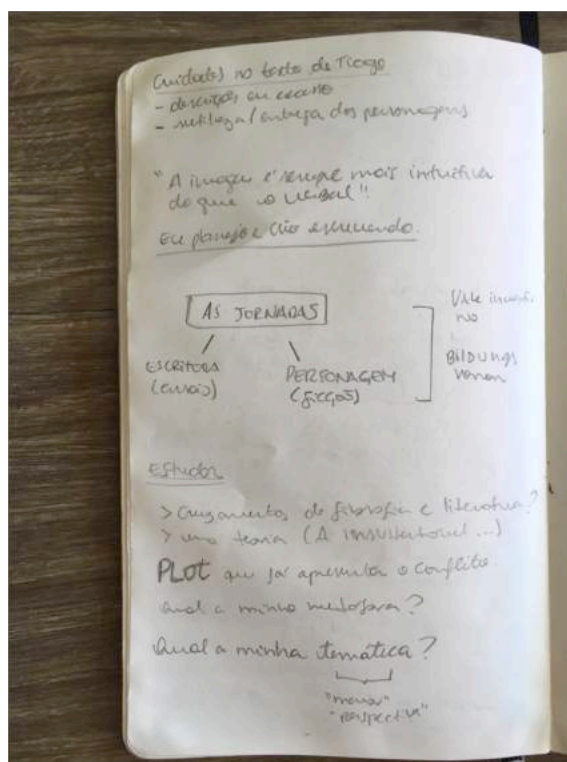 Cuidados no texto de Tiago
- descrições em excesso
- sutileza/entrega dos personagens
"A imagem é sempre mais intuitiva
do que o verbal"!
Eu planejo e crio escrevendo.
AS JORNADAS
ESCRITORA
(ensaio)
PERSONAGEM
(ficção)
Vale investir
no
BILDUNGS
roman
Estudar
> Cruzamentos de filosofia e literatura?
> uma teoria (A ...)
PLOT que já apresenta o conflito.
Qual a minha metáfora?
Qual a minha temática?
"menor"
"perspectiva"